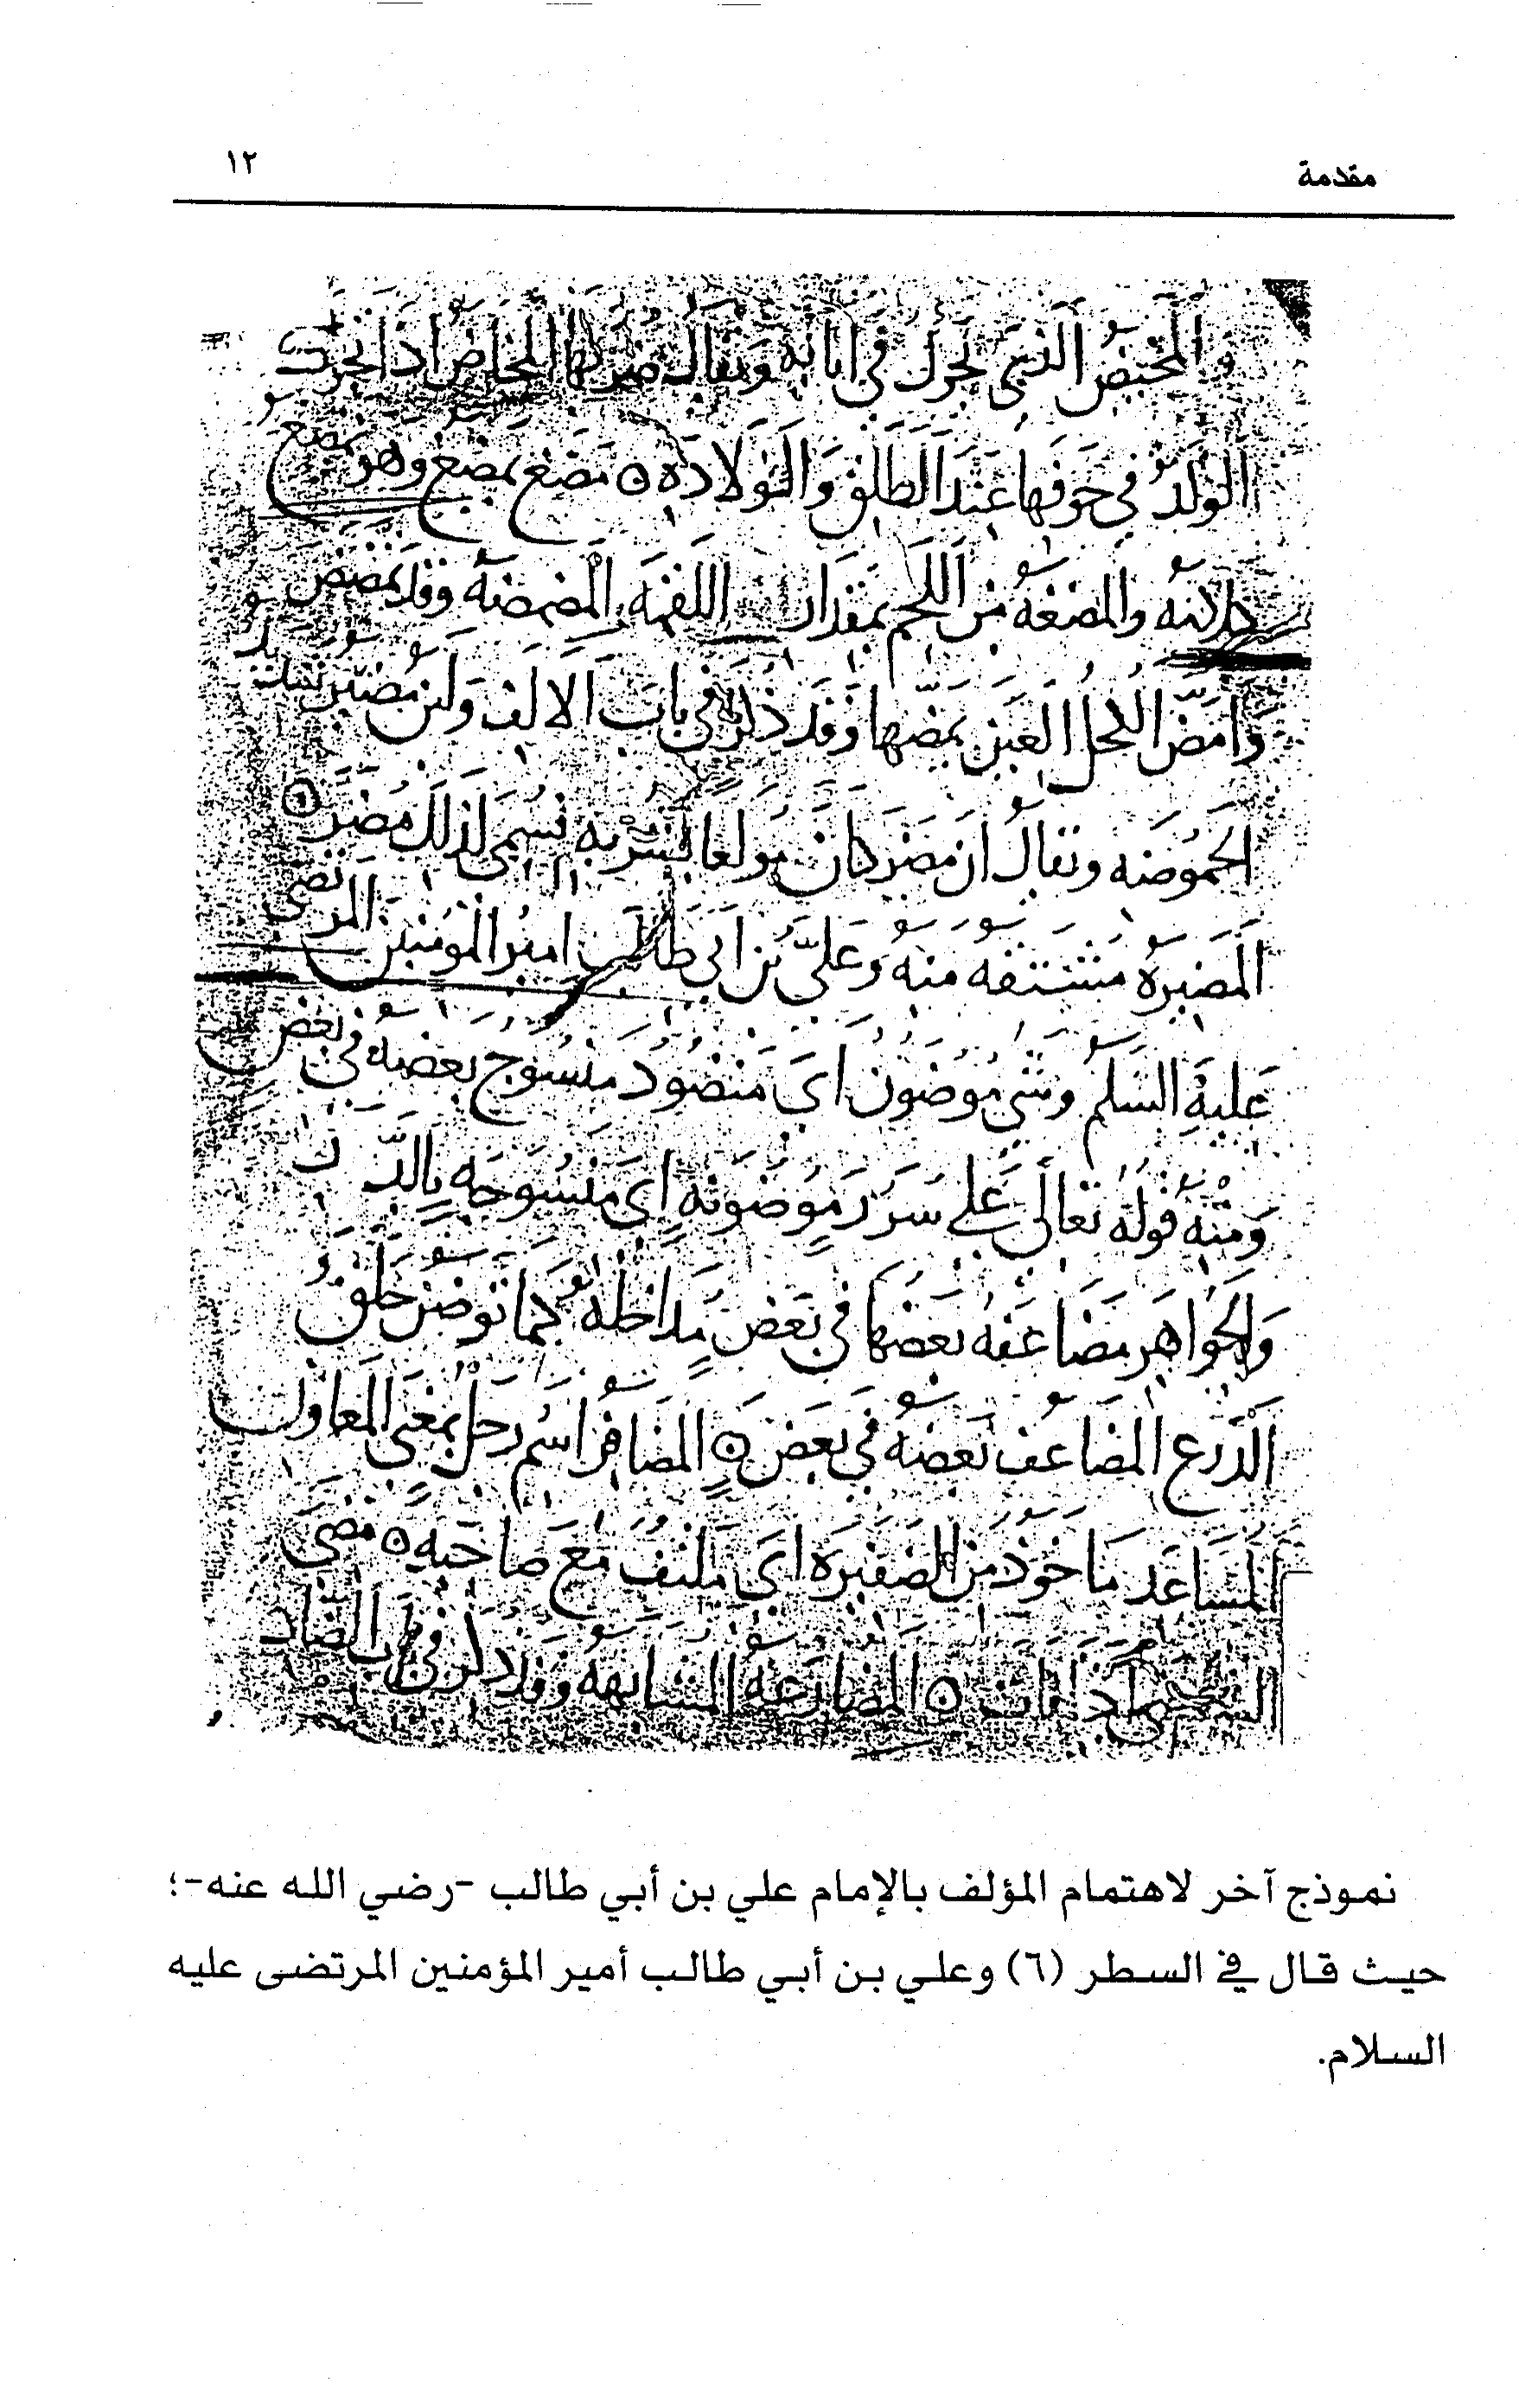 مقدمة ١٢
والمخيض الذي يحرك في إنائه ويقال ضربها المخاض اذا تحرك
الولد في جوفها عند الطلق والولادة ه مضغ يمضغ وهو يمضغ
والمضغة من اللحم بمقدار اللقمة المضمضة وقد تمضمض
وامض الكحل العين يمضها وقد ذكر في باب الالف ولبن مضير
الحموضه ويقال ان مضر كان مولعا بشربه فسمى لذلك مضر ه
المضيرة مشتقه منه وعلي بن ابي طالب امير المومنين المرتضى
عليه السلم وشي موضون اي منضود منسوج بعضه في بعض
ومنه قوله تعالى على سرر موضونه اي منسوجه بالدر
والجواهر مضاعفه بعضها في بعض مداخله كما توضن حلق
الدرع المضاعف بعضه في بعض ه المضافر اسم رجل بمعنى المعاون
المساعد ماخوذ من الضفيرة اي ملتف مع صاحبه ه مضى
اذا فات ه المضارعة المشابهة وقد ذكر في باب الضاد
نموذج آخر لاهتمام المؤلف بالإمام علي بن أبي طالب -رضي الله عنه-؛
حيث قال في السطر (٦) وعلي بن أبي طالب أمير المؤمنين المرتضى عليه
السلام.